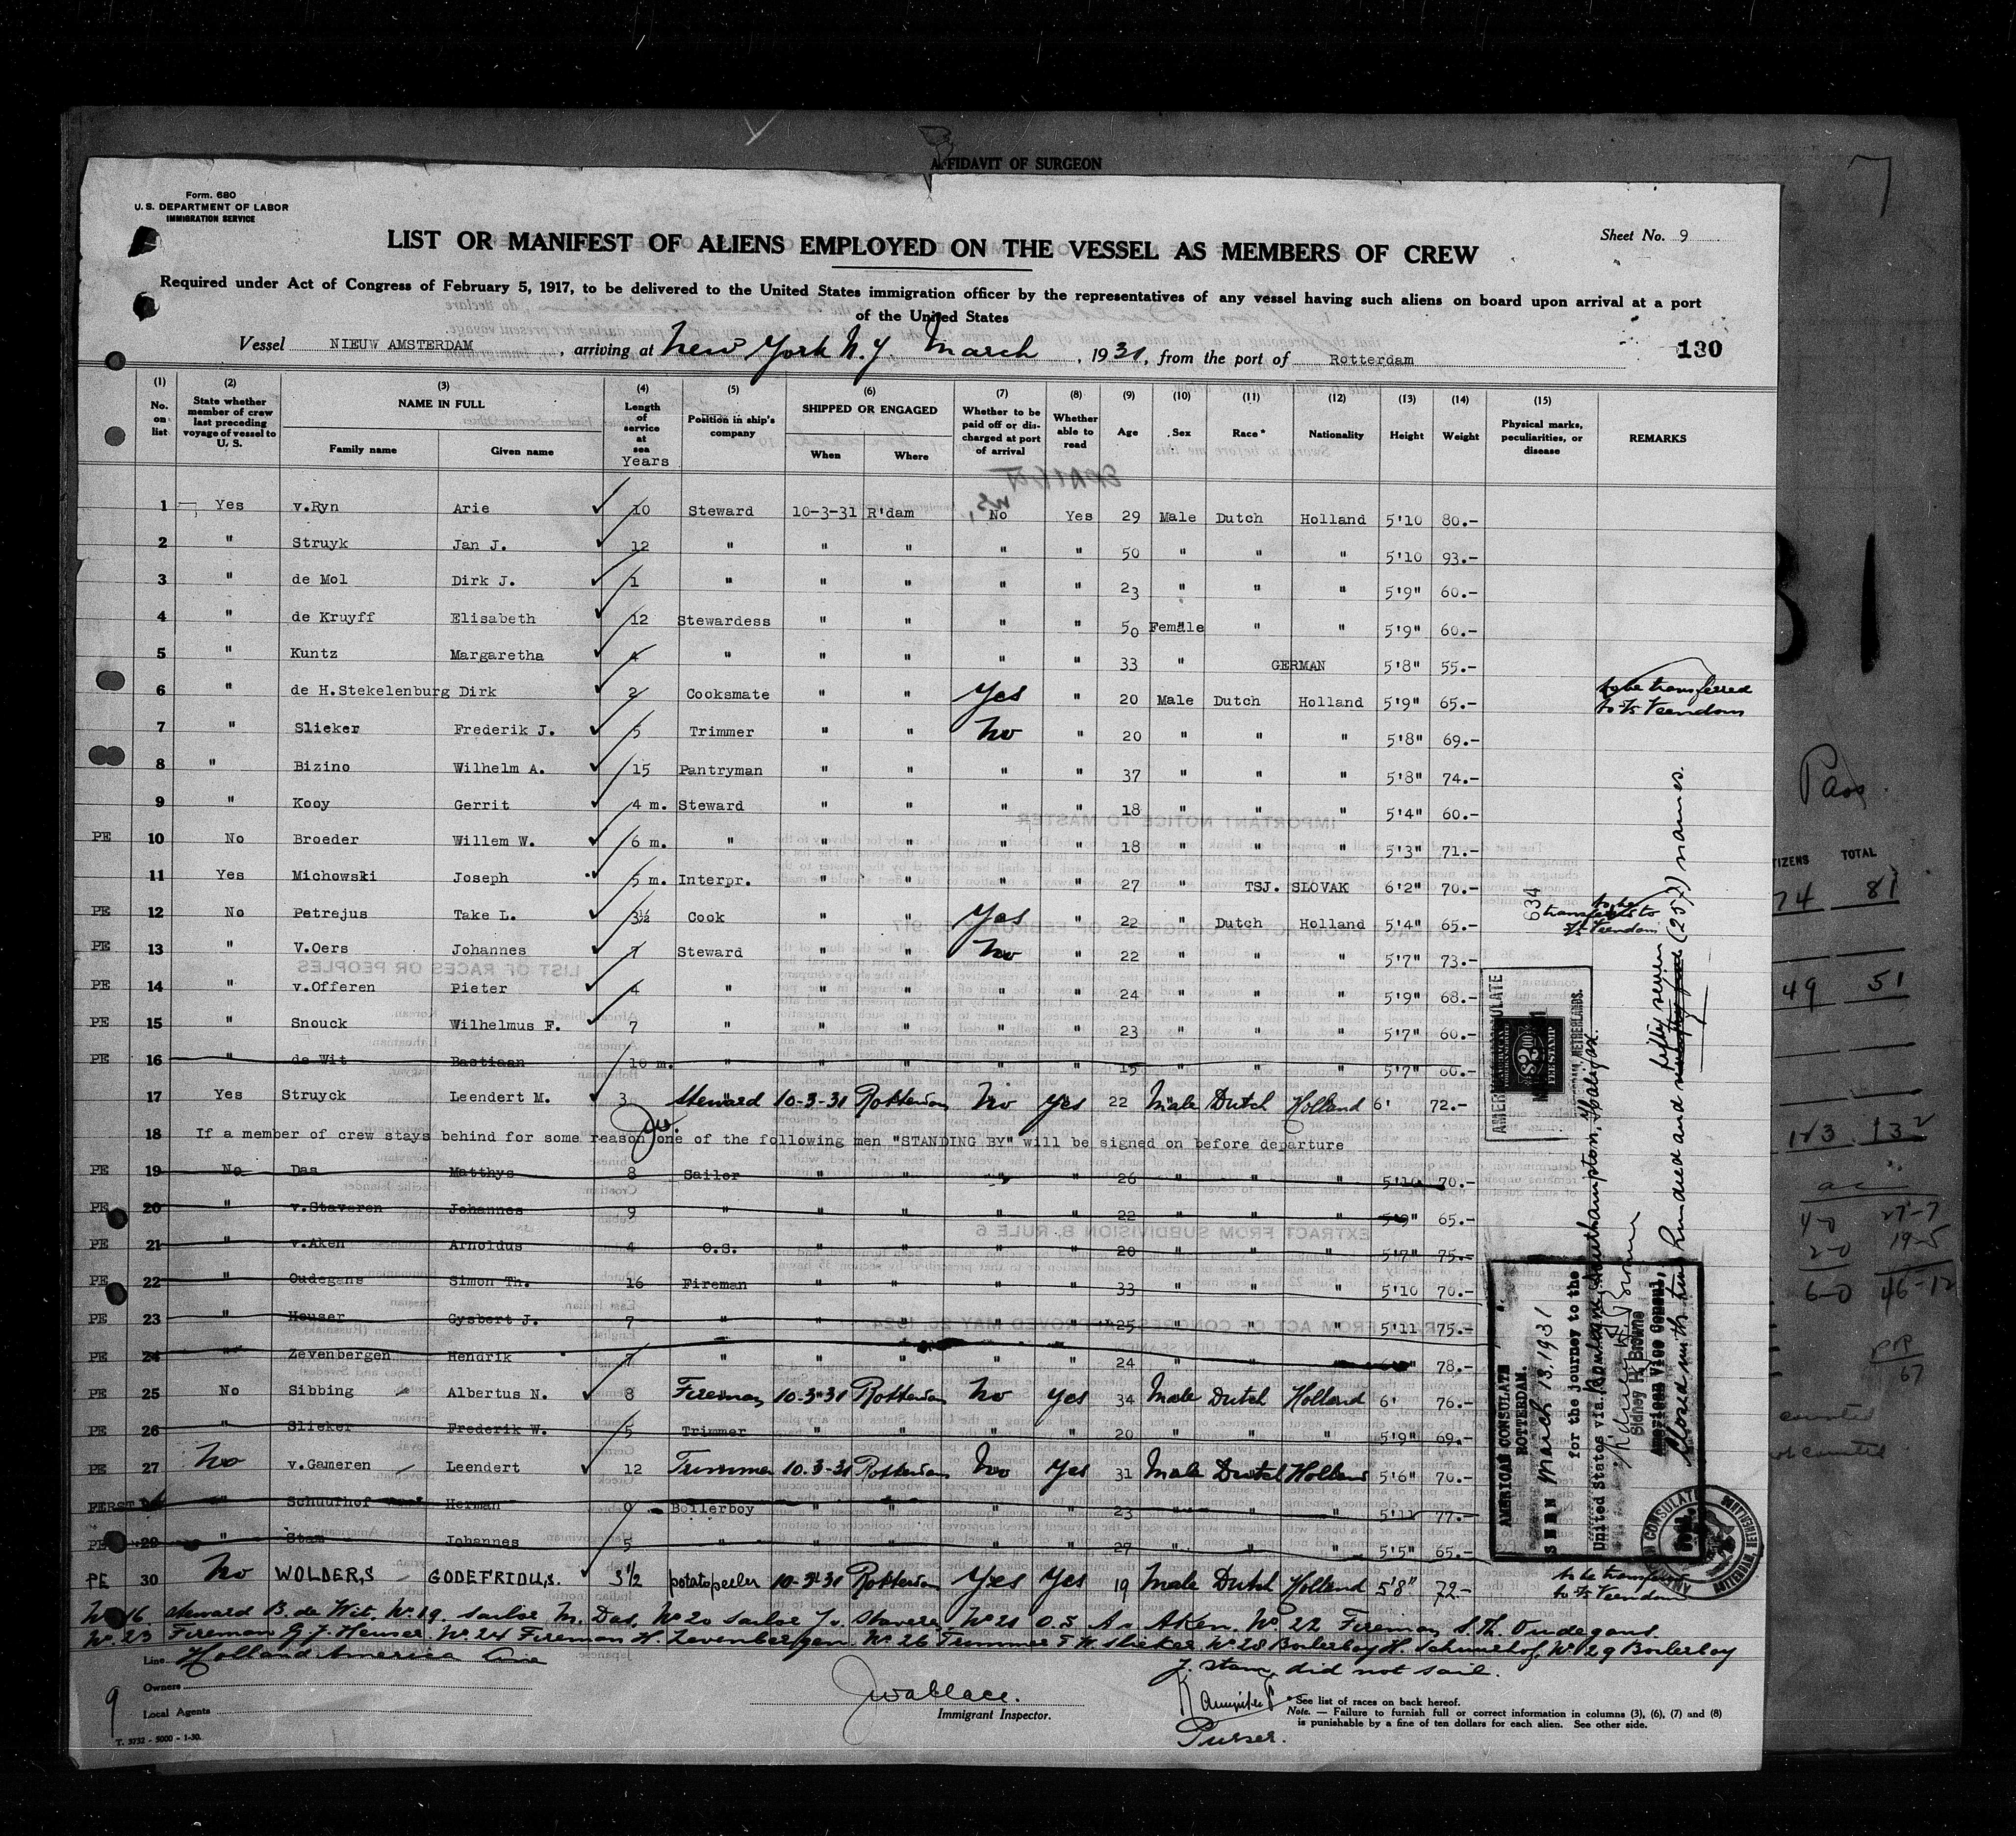 AFFIDAVIT OF SURGEON
Form. 680
U. S. DEPARTMENT OF LABOR
IMMIGRATION SERVICE
Sheet No. 9
LIST OR MANIFEST OF ALIENS EMPLOYED ON THE VESSEL AS MEMBERS OF CREW
Required under Act of Congress of February 5, 1917, to be delivered to the United States immigration officer by the representatives of any vessel having such aliens on board upon arrival at a port
of the United States
Vessel NIEUW AMSTERDAM, arriving at New York N.Y. March, 1931, from the port of Rotterdam
130
(1) (2) (3) (4) (5) (6) (7) (8) (9) (10) (11) (12) (13) (14) (15)
No. on list State whether member of crew last preceding voyage of vessel to U. S. NAME IN FULL Family name Given name Length of service at sea Years Position in ship's company SHIPPED OR ENGAGED When Where Whether to be paid off or discharged at port of arrival Whether able to read Age Sex Race* Nationality Height Weight Physical marks, peculiarities, or disease REMARKS
1 Yes v.Ryn Arie 10 Steward 10-3-31 R'dam No Yes 29 Male Dutch Holland 5'10 80.-
2 " Struyk Jan J. 12 " " " " " 50 " " " 5'10 93.-
3 " de Mol Dirk J. 1 " " " " " 23 " " " 5'9" 60.-
4 " de Kruyff Elisabeth 12 Stewardess " " " " 50 Female " " 5'9" 60.-
5 " Kuntz Margaretha 4 " " " " " 33 " GERMAN 5'8" 55.-
6 " de H.Stekelenburg Dirk 2 Cooksmate " " Yes " 20 Male Dutch Holland 5'9" 65.- to be transferred to s/s Veendam
7 " Slieker Frederik J. 5 Trimmer " " No " 20 " " " 5'8" 69.-
8 " Bizino Wilhelm A. 15 Pantryman " " " " 37 " " " 5'8" 74.-
9 " Kooy Gerrit 4 m. Steward " " " " 18 " " " 5'4" 60.-
PE 10 No Broeder Willem W. 6 m. " " " " " 18 " " " 5'3" 71.-
11 Yes Michowski Joseph 5 m. Interpr. " " " " 27 " TSJ. SLOVAK 6'2" 70.-
PE 12 No Petrejus Take L. 3½ Cook " " Yes " 22 " Dutch Holland 5'4" 65.- to be transferred to s/s Veendam
PE 13 " V.Oers Johannes 7 Steward " " No " 22 " " " 5'7" 73.-
PE 14 " v.Offeren Pieter 4 " " " " " 24 " " " 5'9" 68.-
PE 15 " Snouck Wilhelmus F. 7 " " " " " 23 " " " 5'7" 60.-
PE 16 " de Wit Bastiaan 10 m. " " " " " 15 " " " 5'7" 60.-
17 Yes Struyck Leendert M. 3 Steward 10-3-31 Rotterdam No Yes 22 Male Dutch Holland 6' 72.-
18 If a member of crew stays behind for some reason one of the following men "STANDING BY" will be signed on before departure
PE 19 No Das Matthys 8 Sailor " " " " 26 " " " 5'10 70.-
PE 20 " v.Staveren Johannes 9 " " " " " 22 " " " 5'9" 65.-
PE 21 " v.Aken Arnoldus 4 O.S. " " " " 20 " " " 5'7" 75.-
PE 22 " Oudegans Simon Th. 16 Fireman " " " " 33 " " " 5'10 70.-
PE 23 " Heuser Gysbert J. 7 " " " " " 25 " " " 5'11 75.-
PE 24 " Zevenbergen Hendrik 7 " " " " " 24 " " " 78.-
PE 25 No Sibbing Albertus N. 8 Fireman 10-3-31 Rotterdam No Yes 34 Male Dutch Holland 6' 76.-
PE 26 " Slieker Frederik W. 5 Trimmer " " " " 20 " " " 5'9" 69.-
PE 27 No v.Gameren Leendert 12 Trimmer 10-3-31 Rotterdam No Yes 31 Male Dutch Holland 5'6" 70.-
" Schuurhof Herman 9 Boilerboy " " " " 23 " " " 5'11 77.-
PE 29 " Stam Johannes 5 " " " " " 27 " " " 5'5" 65.-
PE 30 No WOLDERS GODEFRIDUS. 3 1/2 potatopeeler 10-3-31 Rotterdam Yes Yes 19 Male Dutch Holland 5'8" 72.- to be transferred to s/s Veendam
No 16 steward B. de Wit. No 19. sailor M. Das. No 20 sailor J. v. Stavere No 21 O.S. A v Aken. No 22 Fireman S.Th. Oudegans.
No. 23 Fireman G.J. Heuser. No 24 Fireman H. Zevenbergen. No 26 Trimmer F.W. Slieker No 28 Boilerboy H. Schuurhof, No 29 Boilerboy
J. Stam, did not sail.
Line Holland America Line
Owners
Local Agents
9
T. 3732 - 5000 - 1-30.
JWallace.
Immigrant Inspector.
Purser.
* See list of races on back hereof.
Note. — Failure to furnish full or correct information in columns (3), (6), (7) and (8)
is punishable by a fine of ten dollars for each alien. See other side.
634
AMERICAN CONSULATE
ROTTERDAM, NETHERLANDS.
$2
FEE STAMP
AMERICAN CONSULATE
ROTTERDAM.
SEEN March 13. 1931
for the journey to the
United States via. Boulogne, Southampton, Halifax.
Sidney H. Browne
American Vice Consul.
Closed with two hundred and fifty seven (257) names.
Pass
CITIZENS TOTAL
74 81
49 51
123 132
4-0 27-7
2-0 19-5
6-0 46-12
67
IMPORTANT NOTICE TO MASTER
LIST OF RACES OR PEOPLES
EXTRACT FROM SUBDIVISION B, RULE 6